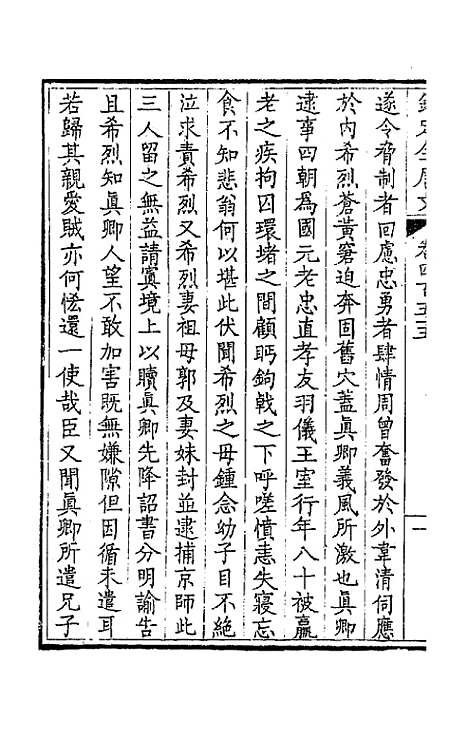 欽定全唐文 卷四百五五 一
遂令脅制者回慮忠勇者肆情周曾奮發於外韋清伺應
於內希烈蒼黃窘迫奔固舊穴蓋眞卿義風所激也眞卿
逮事四朝爲國元老忠直孝友羽儀王室行年八十被羸
老之疾拘囚環堵之間顧眄鉤戟之下呼嗟憤恚失寢忘
食不知悲翁何以堪此伏聞希烈之母鍾念幼子目不絶
泣求責希烈又希烈妻祖母郭及妻妹封並逮捕京師此
三人留之無益請寘境上以贖眞卿先降詔書分明諭告
且希烈知眞卿人望不敢加害既無嫌隙但因循未遣耳
若歸其親愛賊亦何恡還一使哉臣又聞眞卿所遣兄子